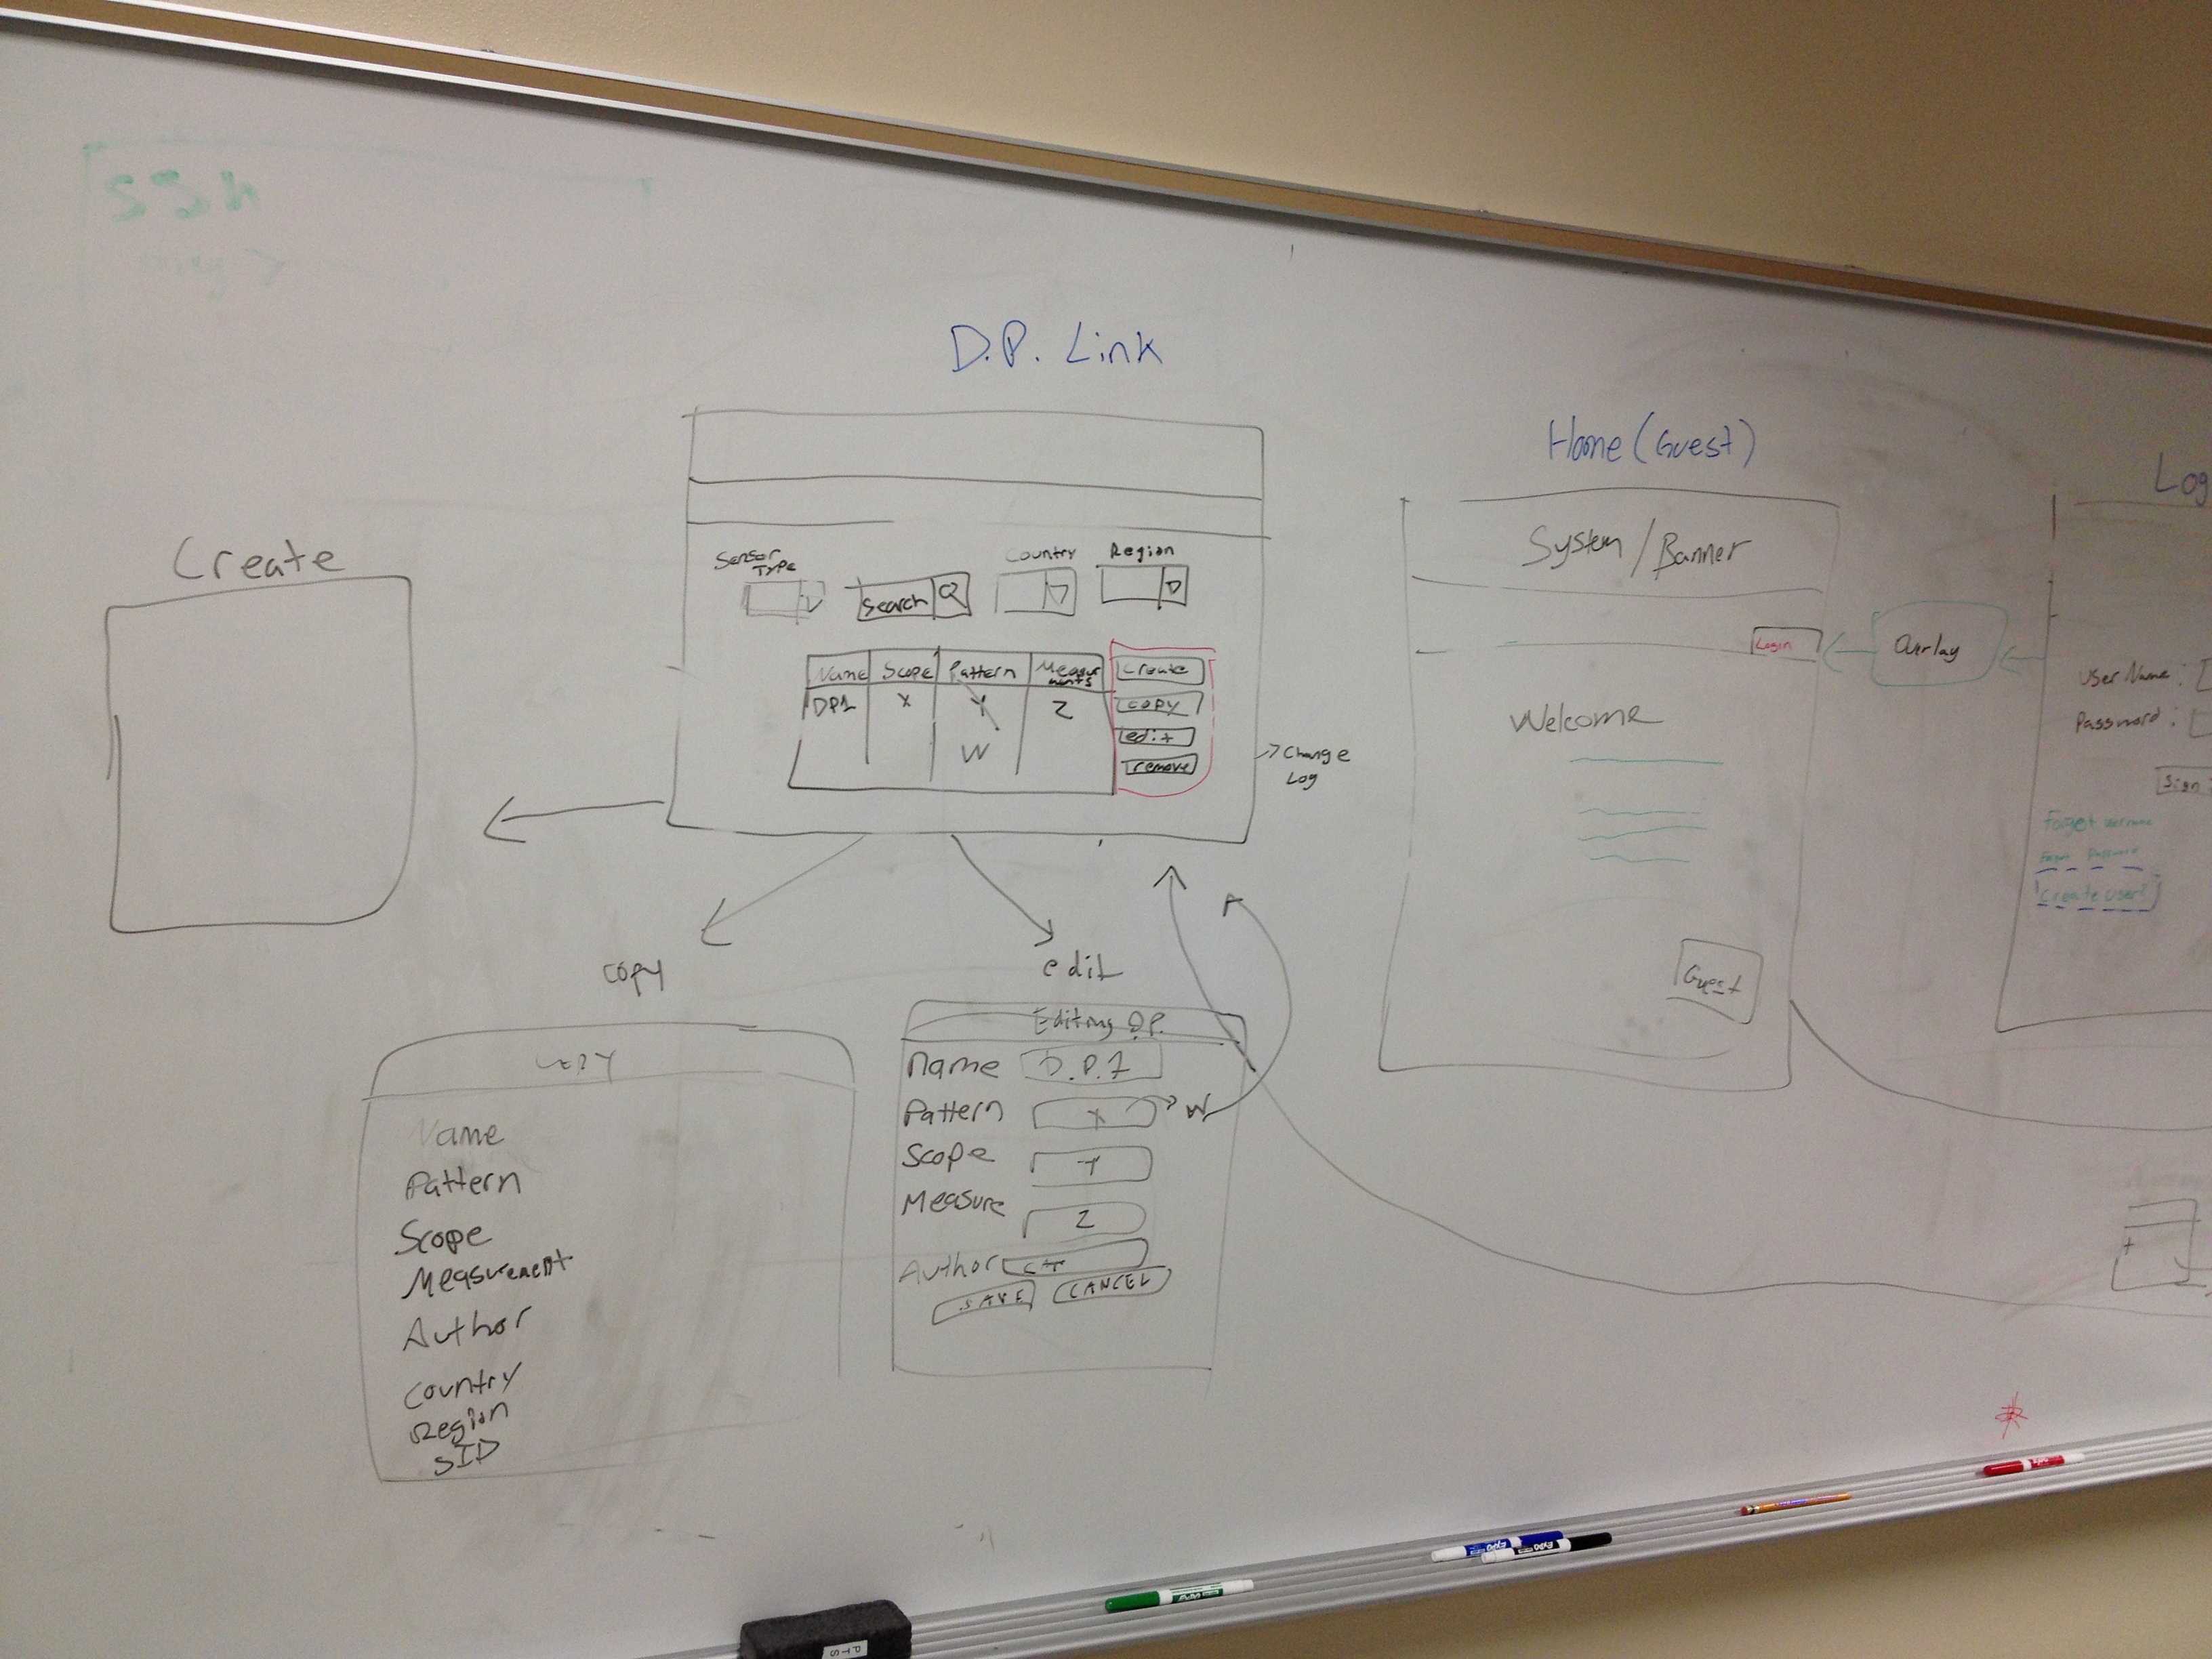 D.P. Link
Sensor Type
Search
Country
Region
Name Scope Pattern Measurments
DP1 X Y Z
W
Create
copy
edit
remove
Change Log
Create
copy
Copy
Name
Pattern
Scope
Measurement
Author
Country
Region
SID
edit
Editing D.P.
Name D.P.1
Pattern X W
Scope Y
Measure Z
Author
SAVE CANCEL
Home (Guest)
System / Banner
Login
Welcome
Guest
Overlay
Log
User Name :
Password :
Sign
Forgot username
Forgot Password
Create User?
EXPO
EXPO
PTS